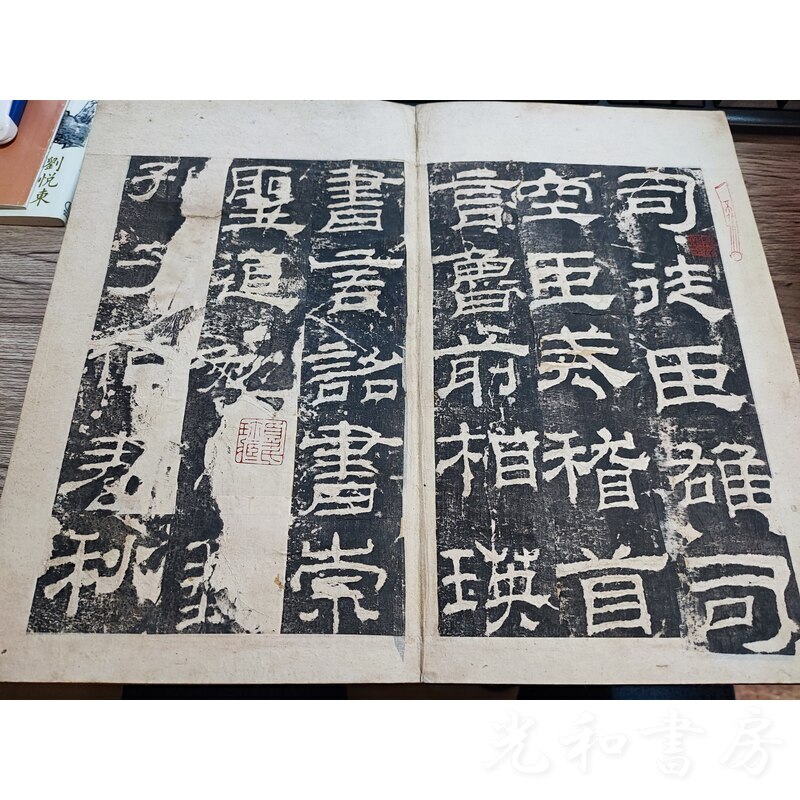 司徒臣雄司
空臣戒稽首
言魯前相瑛
書言詔書崇
聖道勉
孔子作春秋
劉悅東
光和書房